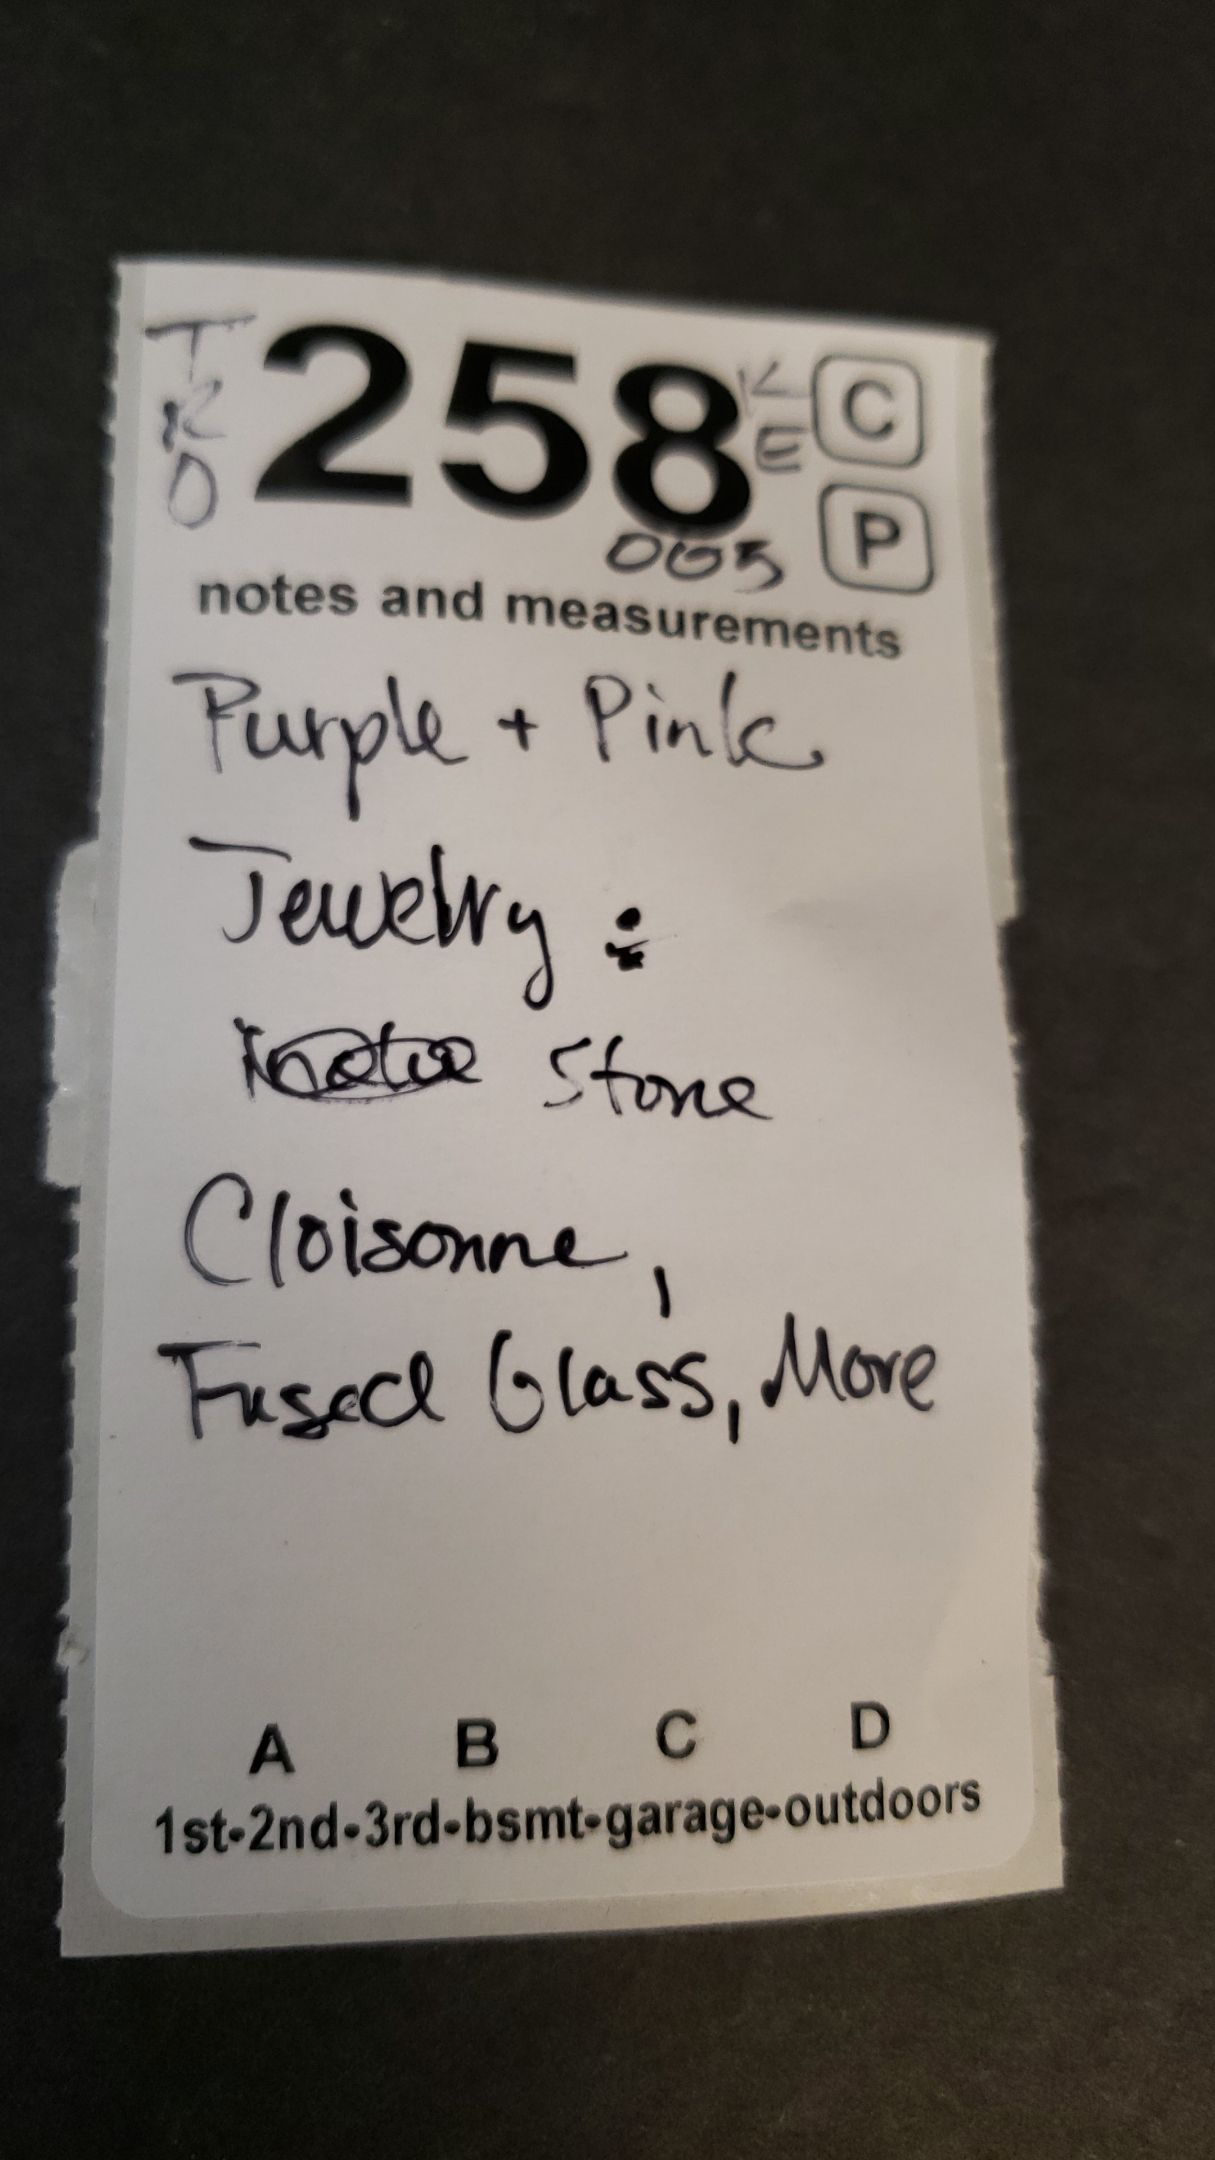 T
R
O
258
K
E
C
P
005
notes and measurements
Purple + Pink
Jewelry :
Stone
Cloisonne,
Fused Glass, More
A B C D
1st-2nd-3rd-bsmt-garage-outdoors